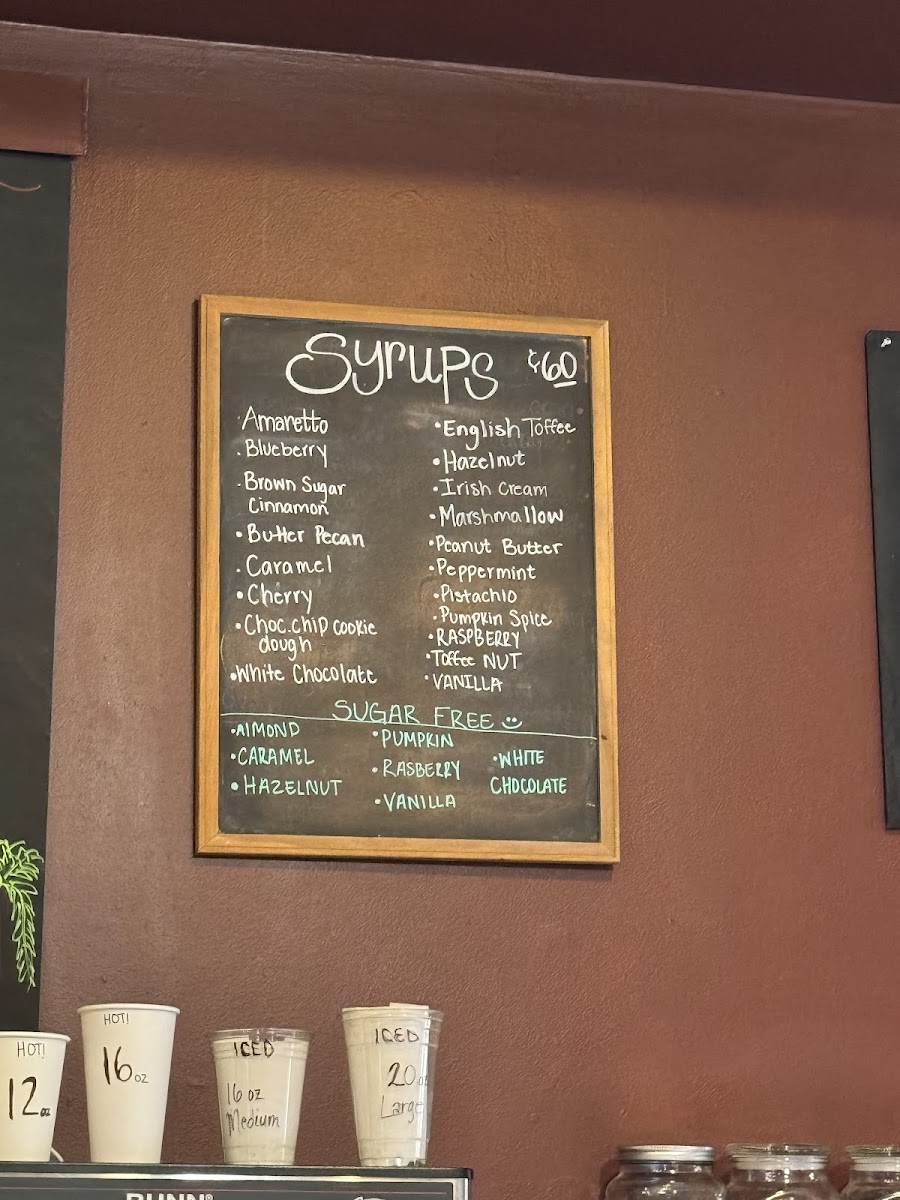 Syrups ¢60
· Amaretto
· Blueberry
· Brown Sugar
Cinnamon
• Butter Pecan
· Caramel
• Cherry
• Choc.chip cookie
dough
• White Chocolate
• English Toffee
• Hazelnut
• Irish Cream
• Marshmallow
• Peanut Butter
• Peppermint
• Pistachio
• Pumpkin Spice
• RASPBERRY
• Toffee NUT
• VANILLA
SUGAR FREE
• AlMOND
• CARAMEL
• HAZELNUT
• PUMPKIN
• RASBERRY
• VANILLA
• WHITE
CHOCOLATE
HOT!
12 oz
HOT!
16 oz
ICED
16 oz
Medium
ICED
20 oz
Large
BUNN®